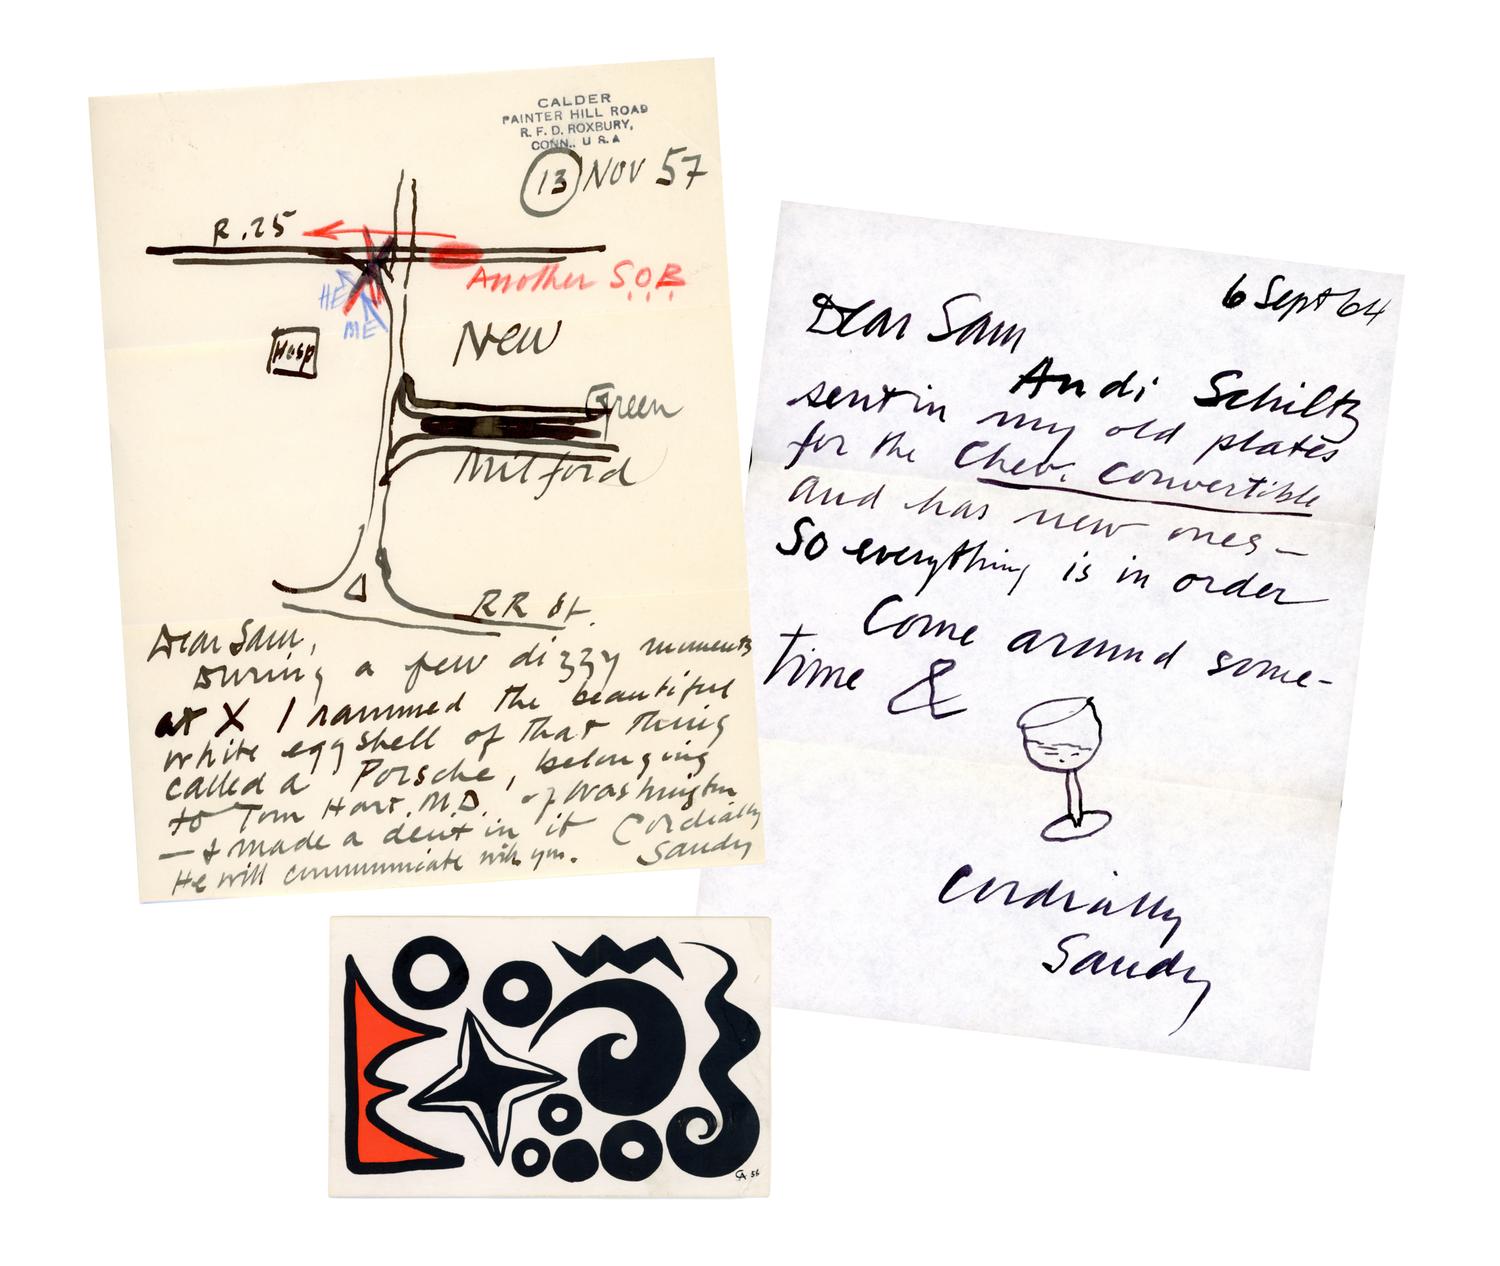 CALDER
PAINTER HILL ROAD
R. F. D. ROXBURY,
CONN., U S A
13 NOV 57
R.25
Another S.O.B
HE
ME
Hosp
New
Green
Milford
RR St.
Dear Sam,
During a few dizzy moments
at X I rammed the beautiful
white eggshell of that thing
called a Porsche, belonging
to Tom Hart M.D. of Washington
— & made a dent in it Cordially
He will communicate with you. Sandy
6 Sept 64
Dear Sam
Andi Schiltz
sent in my old plates
for the Chev. Convertible
and has new ones—
So everything is in order
Come around some-
time &
Cordially
Sandy
CA 56